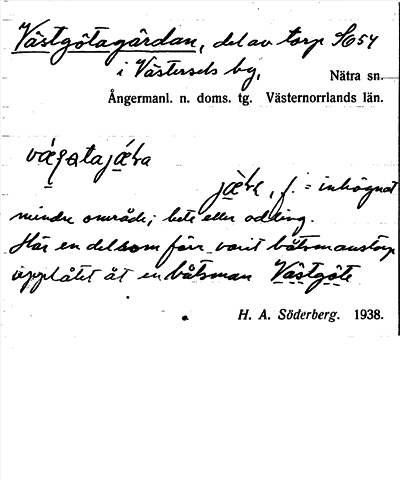 Västgötagärdan, del av torp S654
i Västersels by,
Nätra sn.
Ångermanl. n. doms. tg. Västernorrlands län.
jæ̀ṛa, f. = inhägnat
mindre område; bete eller odling.
Här en del som förr varit båtsmanstorp
upplåtet åt en båtsman Västgöte
H. A. Söderberg. 1938.